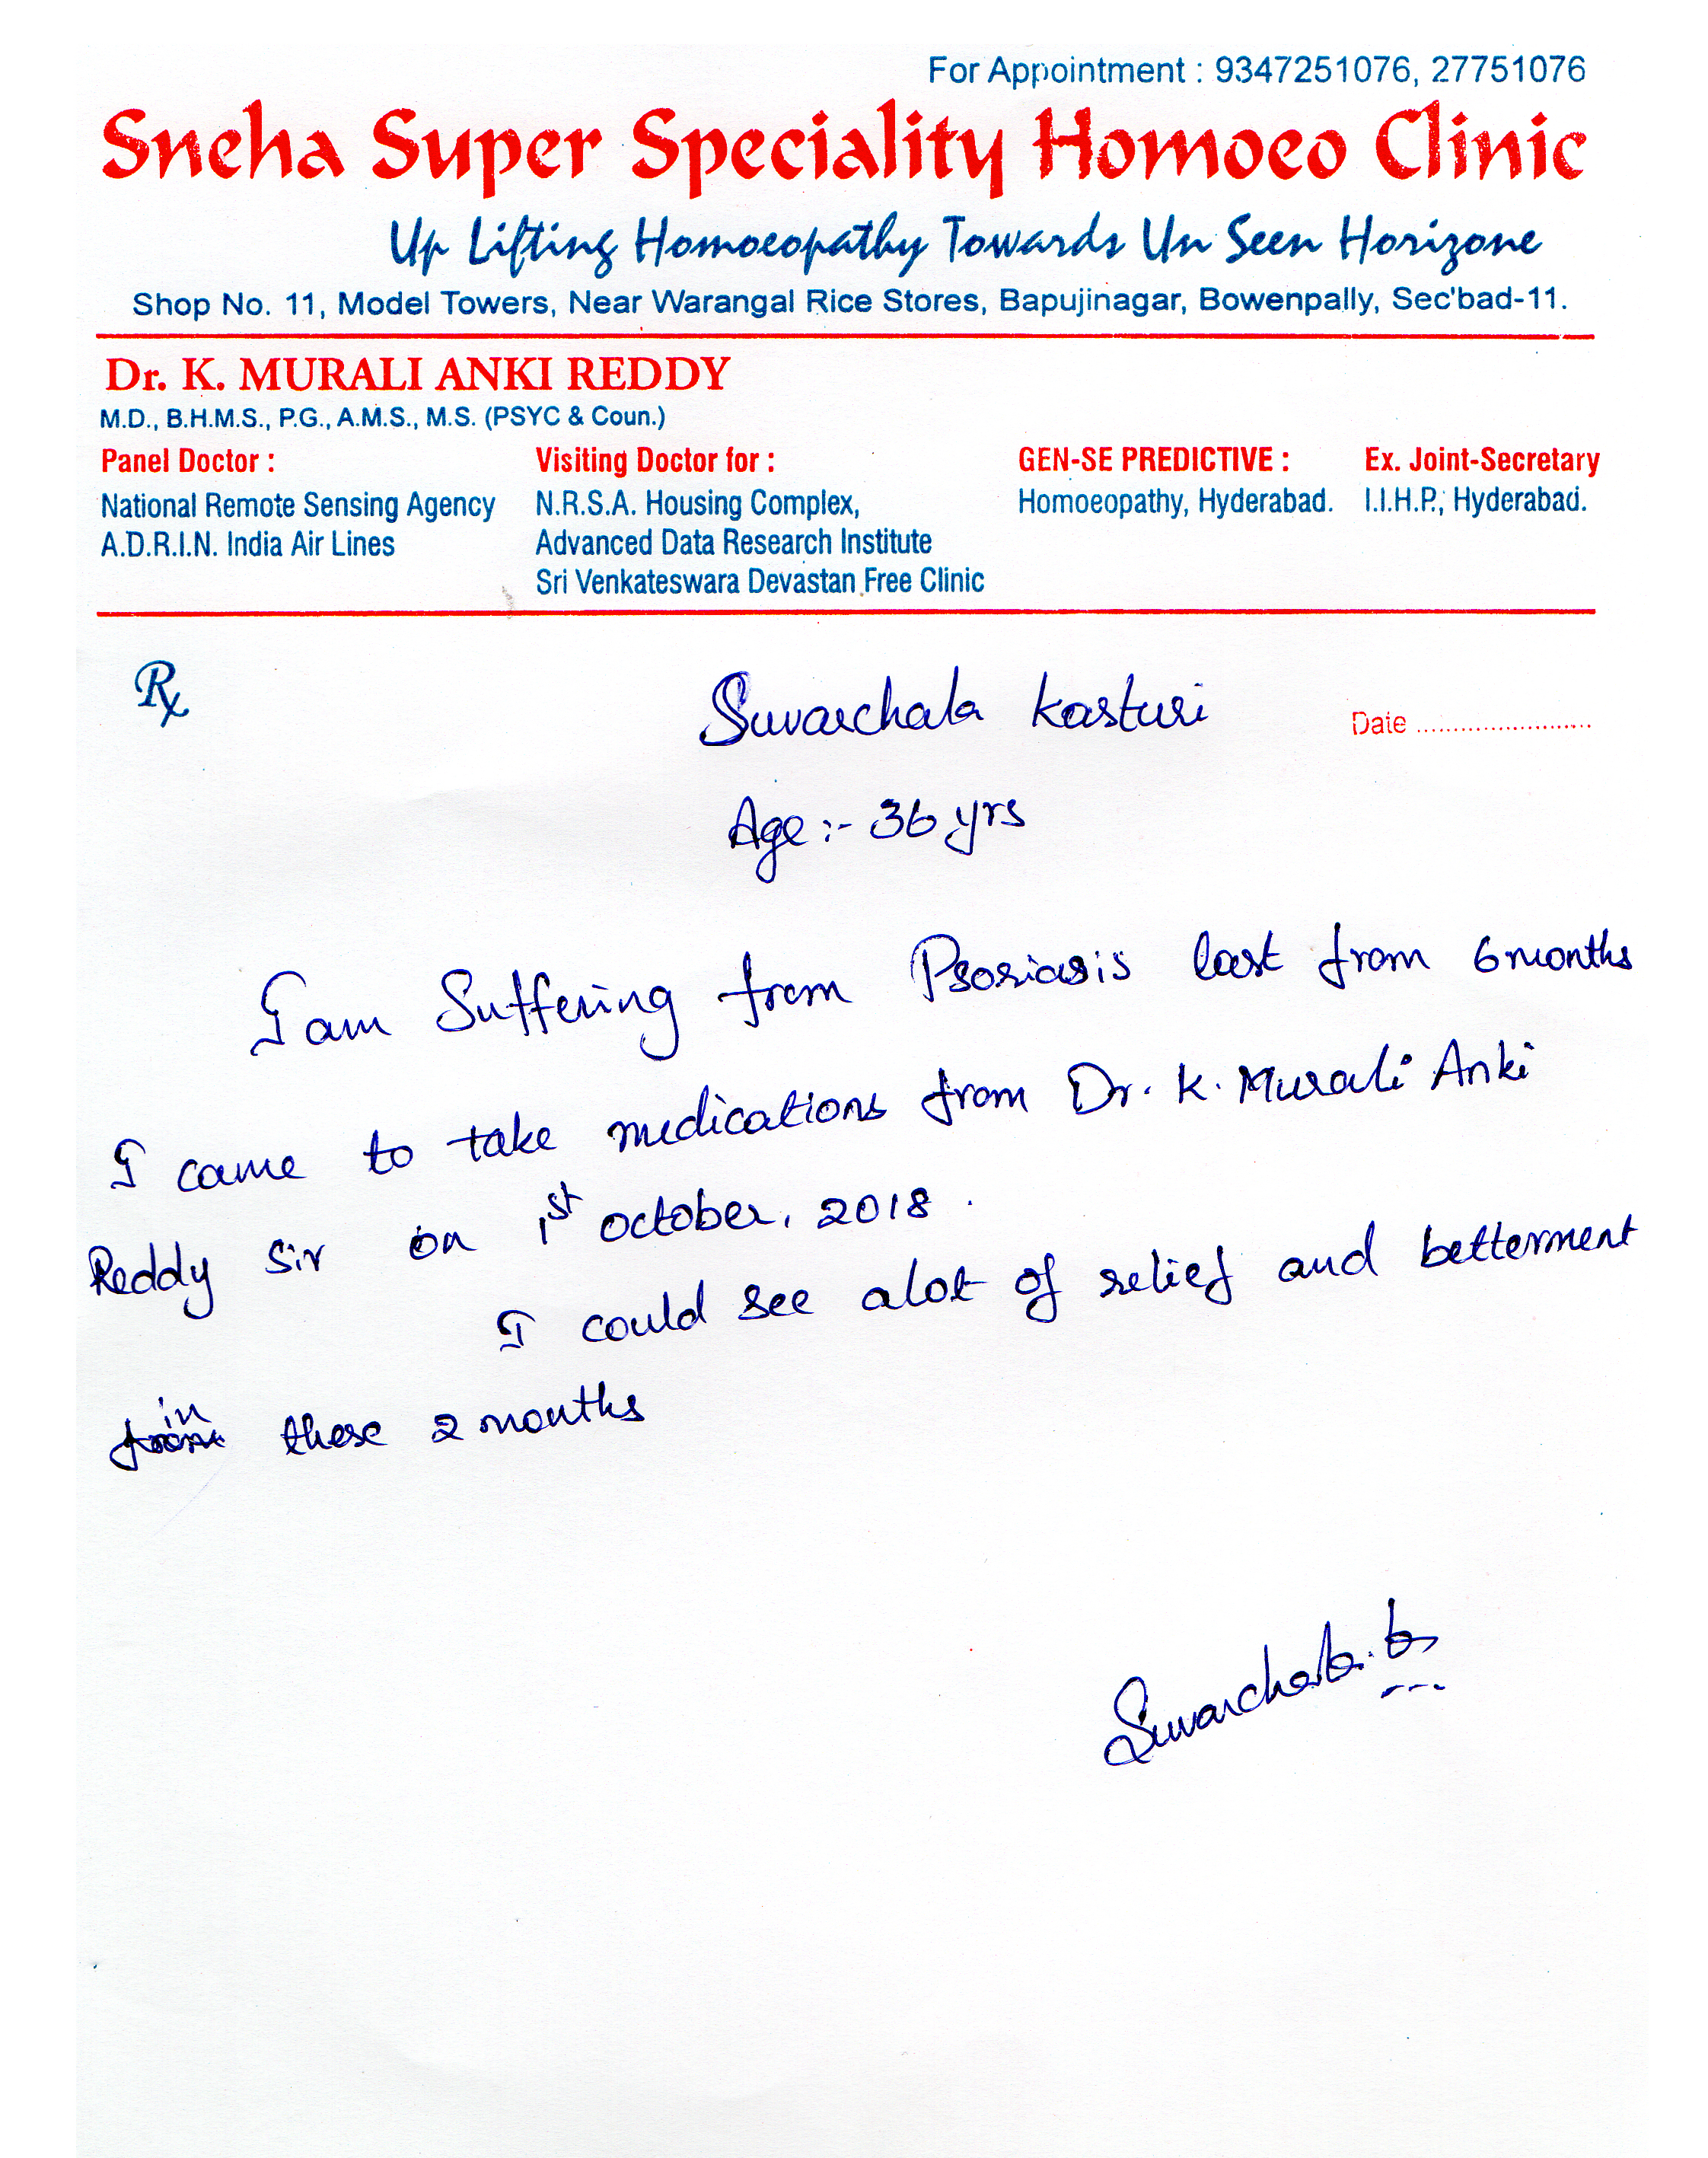 For Appointment : 9347251076, 27751076
Sneha Super Speciality Homoeo Clinic
Up Lifting Homoeopathy Towards Un Seen Horizone
Shop No. 11, Model Towers, Near Warangal Rice Stores, Bapujinagar, Bowenpally, Sec'bad-11.
Dr. K. MURALI ANKI REDDY
M.D., B.H.M.S., P.G., A.M.S., M.S. (PSYC & Coun.)
Panel Doctor :
National Remote Sensing Agency
A.D.R.I.N. India Air Lines
Visiting Doctor for :
N.R.S.A. Housing Complex,
Advanced Data Research Institute
Sri Venkateswara Devastan Free Clinic
GEN-SE PREDICTIVE :
Homoeopathy, Hyderabad.
Ex. Joint-Secretary
I.I.H.P., Hyderabad.
Rx
Suvarchala Kasturi
Date ........................
Age :- 36 yrs
I am Suffering from Psoriasis last from 6 months
I came to take medications from Dr. K. Murali Anki
Reddy Sir on 1st october, 2018.
I could see alot of relief and betterment
in these 2 months
Suvarchala.